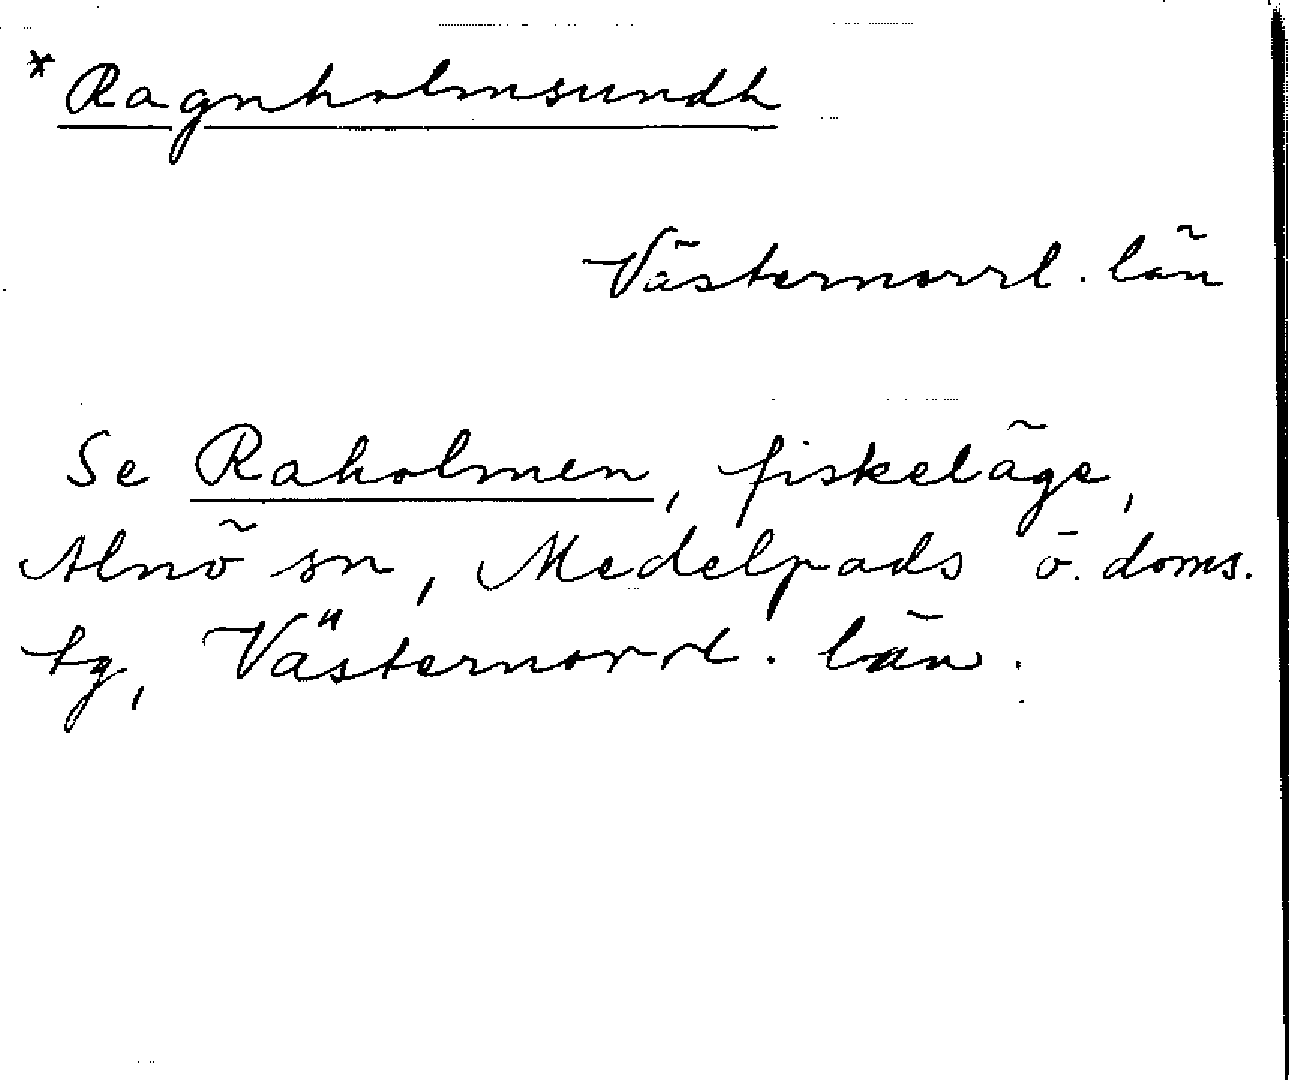 * Ragnholmsundh
Västernorrl. län
Se Raholmen, fiskeläge,
Alnö sn, Medelpads ö. doms.
tg, Västernorrl. län.